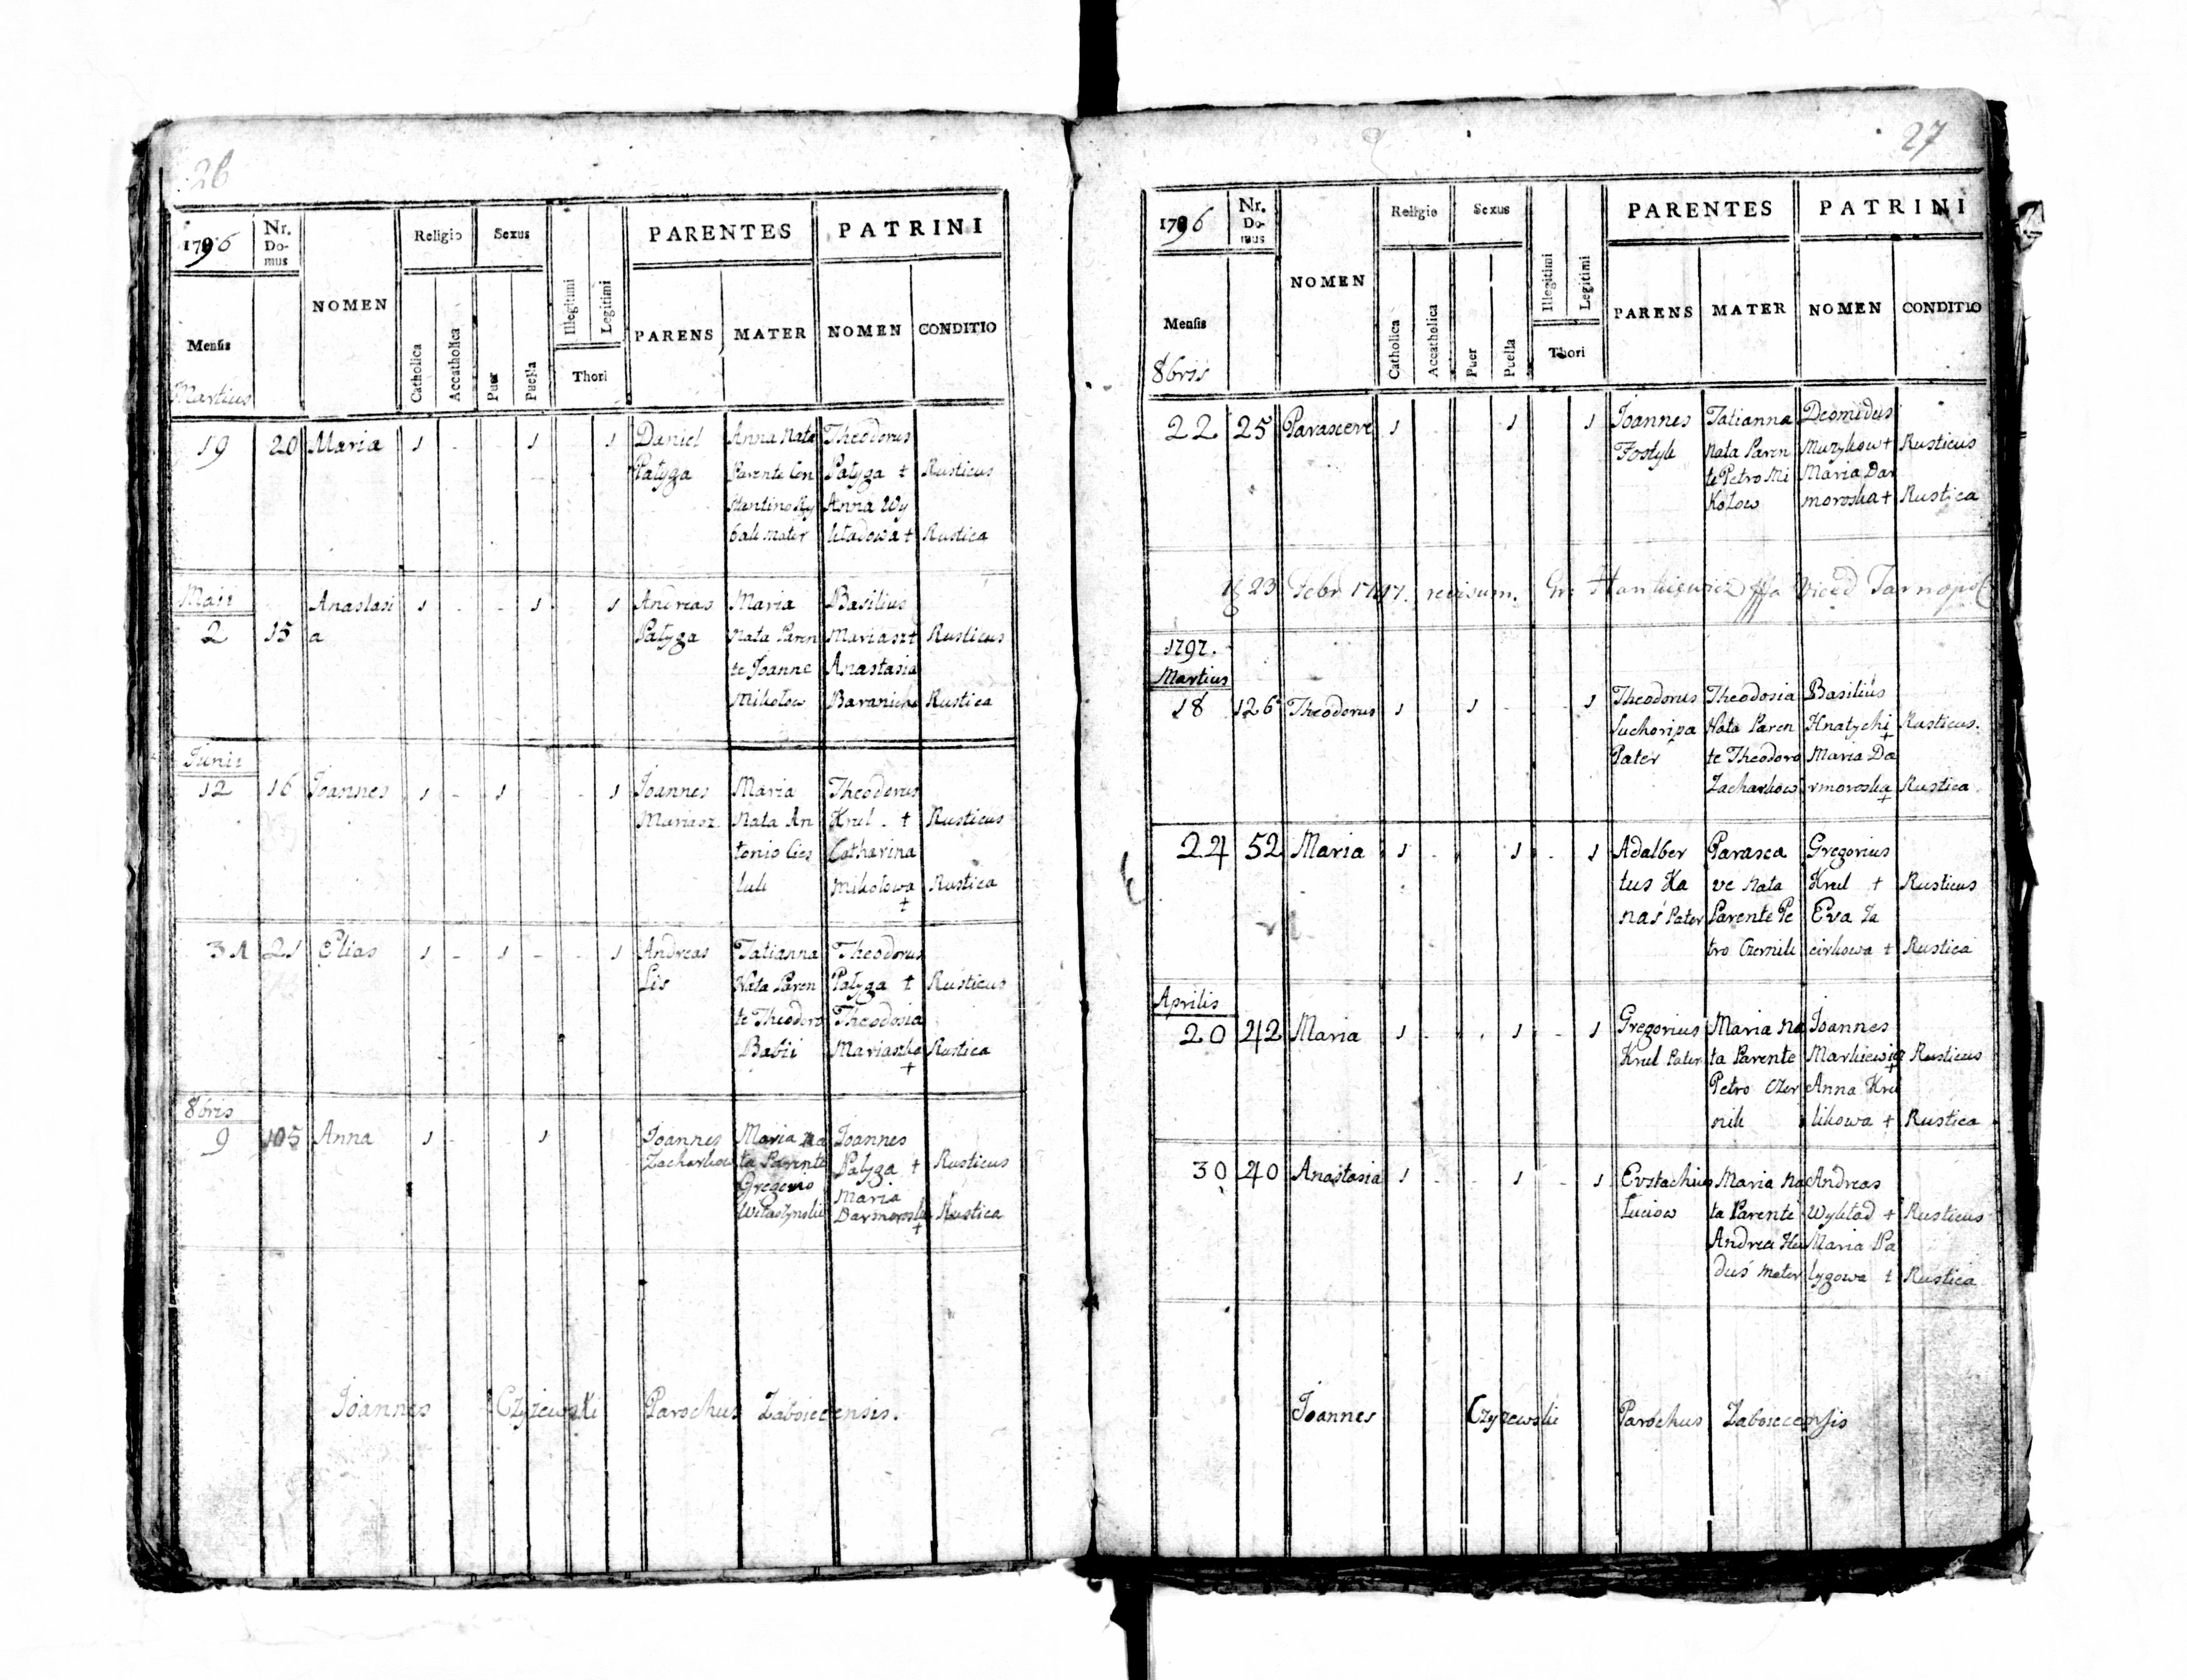 26
1796
Nr. Domus
NOMEN
Religio
Sexus
Illegitimi
Legitimi
PARENTES
PATRINI
Mensis
Catholica
Accatholica
Puer
Puella
Thori
PARENS
MATER
NOMEN
CONDITIO
Martius
19 20 Maria 1 - - 1 1 Daniel Anna Nata Theodorus
Patyga Parente Con Patyga + Rusticus
stantino Anna Wy
mater kładowa + Rustica
Maii
Anastasi 1 - - 1 1 Andreas Maria Basilius
2 15 a Patyga Nata Paren Mariasz + Rusticus
te Joanne Anastasia
Mikołow Rustica
Junii
12 16 Joannes 1 - 1 - 1 Joannes Maria Theodorus
Mariasz Nata An Krul + Rusticus
tonio Catharina
Mikołowa Rustica
+
31 21 Elias 1 - 1 - - 1 Andreas Tatianna Theodorus
Lis Nata Paren Patyga + Rusticus
te Theodoro Theodosia
Babii Mariaszka Rustica
+
8bris
9 105 Anna 1 - - 1 Joannes Maria Na Joannes
Zacharkow ta Parente Patyga + Rusticus
Gregorio Maria
Darmoroska Rustica
+
Joannes Czyzewski Parochus Zaboiecensis.
27
1796
Nr. Domus
NOMEN
Religio
Sexus
Illegitimi
Legitimi
PARENTES
PATRINI
Mensis
Catholica
Accatholica
Puer
Puella
Thori
PARENS
MATER
NOMEN
CONDITIO
8bris
22 25 Parasceve 1 1 1 Joannes Tatianna Deomidus
Fostyk Nata Paren Muzykow + Rusticus
te Petro Mi Maria Dar
kołow moroska + Rustica
23 Febr 1797. revisum. Hankiewicz Tarnopol
1797.
Martius
18 126 Theodorus 1 1 - - 1 Theodorus Theodosia Basilius
Suchoripa Nata Paren Hnatychi Rusticus.
+
Pater te Theodoro Maria Da
Zacharkow rmoroska Rustica
+
24 52 Maria 1 - 1 - 1 Adalber Parasce Gregorius
tus Ka ve Nata Krul + Rusticus
naś Pater Parente Pe Eva Za
tro Czernik cirkowa + Rustica
Aprilis
20 42 Maria 1 - . 1 - 1 Gregorius Maria Na Joannes
Krul Pater ta Parente Markiewicz Rusticus
+
Petro Czer Anna Kru
nik likowa + Rustica
30 40 Anastasia 1 - - 1 - 1 Eustachius Maria Na Andreas
Luciow ta Parente Wykład + Rusticus
Andrea Maria Pa
duś Mater tygowa + Rustica
Joannes Czyzewski Parochus Zaboiecensis